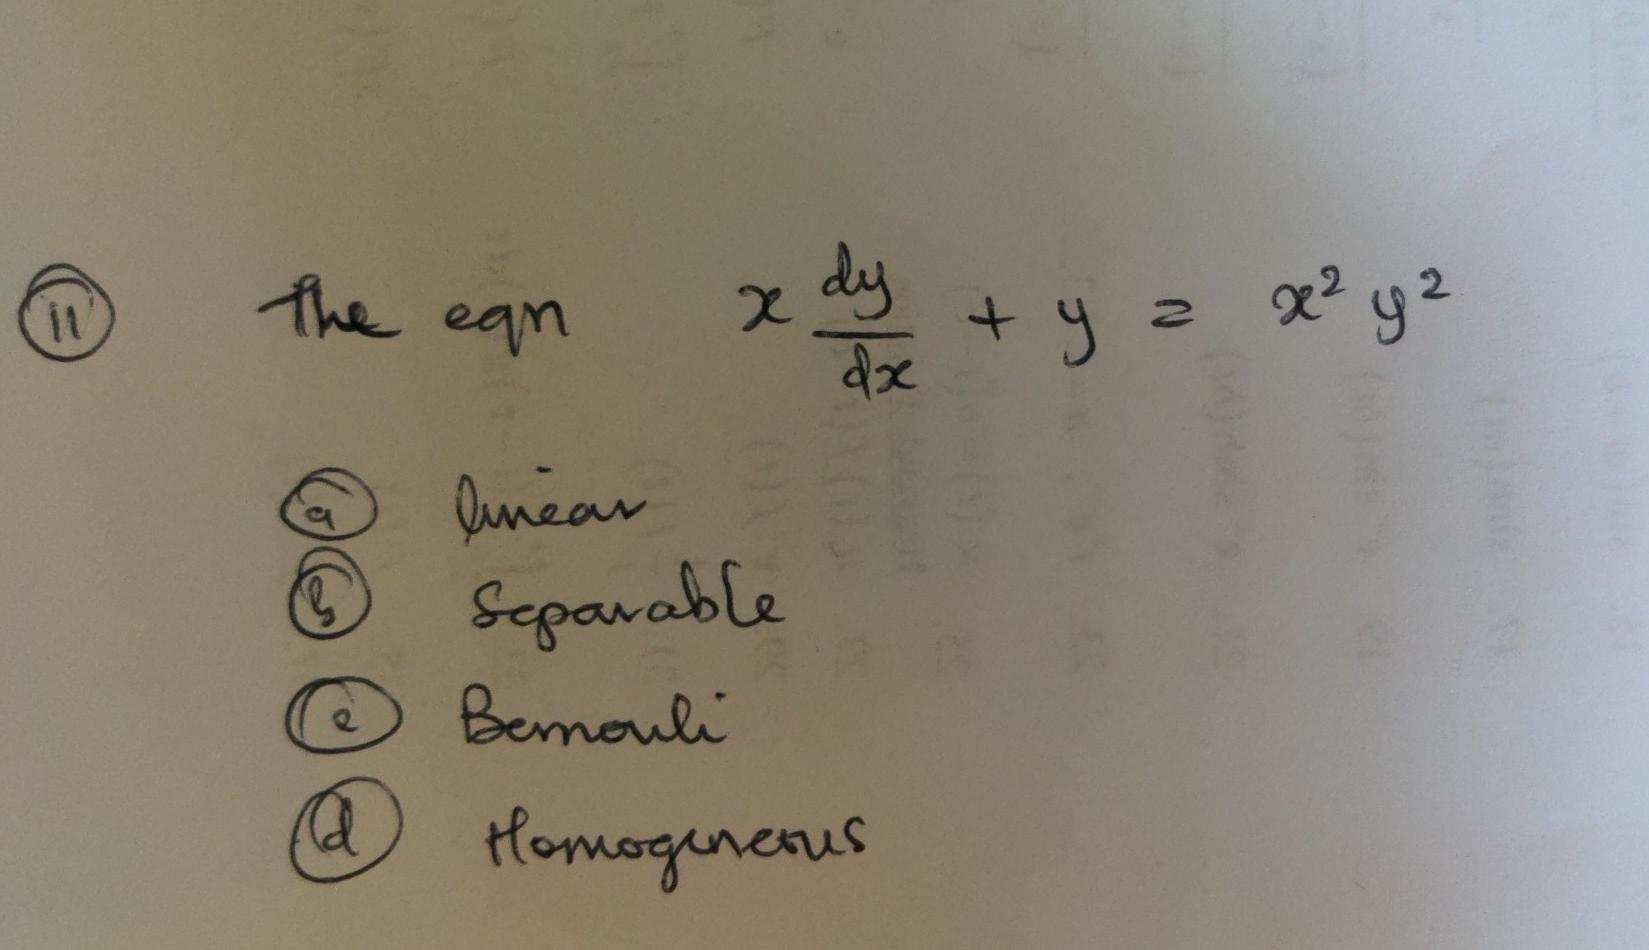 11 The eqn x dy/dx + y = x² y²
a linear
b Separable
c Bernouli
d Homogeneous